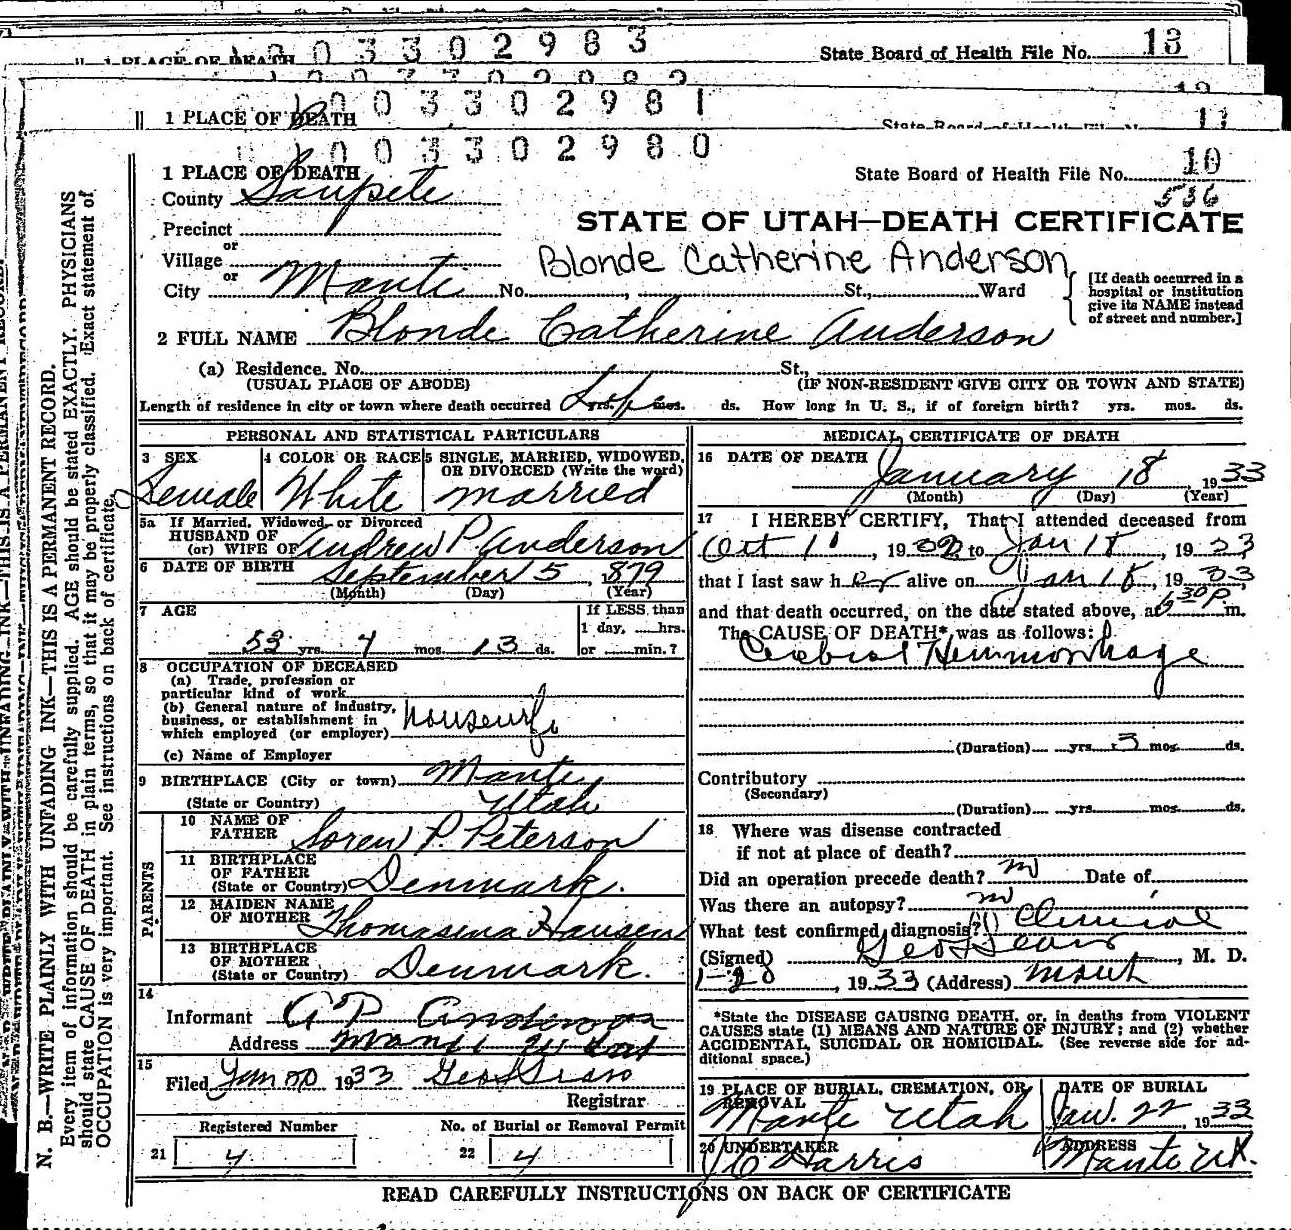 0 0 3 3 0 2 9 8 3
State Board of Health File No. 13
1 PLACE OF DEATH
1 0 0 3 3 0 2 9 8 2
12
1 0 0 3 3 0 2 9 8 1
1 PLACE OF DEATH
State Board of Health File No. 11
1 0 0 3 3 0 2 9 8 0
1 PLACE OF DEATH
State Board of Health File No. 10
536
County Sanpete
STATE OF UTAH—DEATH CERTIFICATE
Precinct
or
Village
Blonde Catherine Anderson
or
City Manti No. , St., Ward
[If death occurred in a hospital or institution give its NAME instead of street and number.]
2 FULL NAME Blonde Catherine Anderson
(a) Residence. No. St.,
(USUAL PLACE OF ABODE) (IF NON-RESIDENT GIVE CITY OR TOWN AND STATE)
Length of residence in city or town where death occurred Life yrs. mos. ds. How long in U. S., if of foreign birth? yrs. mos. ds.
PERSONAL AND STATISTICAL PARTICULARS
3 SEX Female
4 COLOR OR RACE White
5 SINGLE, MARRIED, WIDOWED, OR DIVORCED (Write the word) married
5a If Married, Widowed, or Divorced
HUSBAND OF
(or) WIFE OF Andrew P. Anderson
6 DATE OF BIRTH September 5, 1879
(Month) (Day) (Year)
7 AGE
53 yrs. 4 mos. 13 ds.
If LESS than
1 day, hrs.
or min.?
8 OCCUPATION OF DECEASED
(a) Trade, profession or
particular kind of work
(b) General nature of industry,
business, or establishment in
which employed (or employer) housewife
(c) Name of Employer
9 BIRTHPLACE (City or town) Manti
(State or Country) Utah
PARENTS
10 NAME OF FATHER Soren P. Peterson
11 BIRTHPLACE OF FATHER (State or Country) Denmark.
12 MAIDEN NAME OF MOTHER Thomasena Hansen
13 BIRTHPLACE OF MOTHER (State or Country) Denmark.
14
Informant A P Anderson
Address Manti Utah
15
Filed Jan 20 1933
Registrar
Registered Number
21 4
No. of Burial or Removal Permit
22 4
MEDICAL CERTIFICATE OF DEATH
16 DATE OF DEATH
January 18, 1933
(Month) (Day) (Year)
17 I HEREBY CERTIFY, That I attended deceased from
Oct 11, 1932 to Jan 18, 1933
that I last saw her alive on Jan 18, 1933
and that death occurred, on the date stated above, at 6 30 P. m.
The CAUSE OF DEATH* was as follows:
Cerebral Hemmorrhage
(Duration) yrs. 3 mos. ds.
Contributory
(Secondary)
(Duration) yrs. mos. ds.
18 Where was disease contracted
if not at place of death?
Did an operation precede death? no Date of
Was there an autopsy? no
What test confirmed diagnosis? Clinical
(Signed) , M. D.
1-20, 1933 (Address) Manti
*State the DISEASE CAUSING DEATH, or, in deaths from VIOLENT
CAUSES state (1) MEANS AND NATURE OF INJURY; and (2) whether
ACCIDENTAL, SUICIDAL OR HOMICIDAL. (See reverse side for ad-
ditional space.)
19 PLACE OF BURIAL, CREMATION, OR REMOVAL
Manti Utah
DATE OF BURIAL
Jan. 22, 1933
20 UNDERTAKER
Harris
ADDRESS
Manti Ut.
READ CAREFULLY INSTRUCTIONS ON BACK OF CERTIFICATE
N. B.—WRITE PLAINLY WITH UNFADING INK—THIS IS A PERMANENT RECORD.
Every item of information should be carefully supplied. AGE should be stated EXACTLY. PHYSICIANS
should state CAUSE OF DEATH in plain terms, so that it may be properly classified. Exact statement of
OCCUPATION is very important. See instructions on back of certificate.